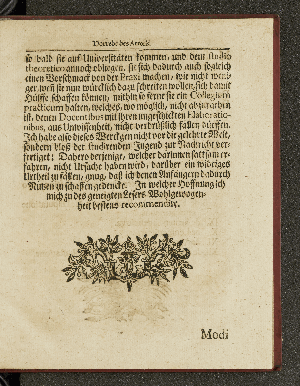 Vorrede des Autoris
so bald sie auf Universitäten kommen, und dem studio
theoretico annoch obliegen, sie sich dadurch auch zugleich
einen Vorschmack von der Praxi machen, wie nicht weni-
ger, wenn sie nun würcklich dazu schreiten wollen, sich damit
Hülffe schaffen können, mithin so ferne sie ein Collegium
practicum halten, welches, wo möglich, nicht abzurathen
ist, denen Docentibus mit ihren ungeschickten Elaboratio-
nibus, aus Unwissenheit, nicht verdrüßlich fallen dürffen.
Ich habe also dieses Werckgen nicht vor die gelehrte Welt,
sondern bloß der studirenden Jugend zur Nachricht ver-
fertiget; Dahero derjenige, welcher darinnen sattsam er-
fahren, nicht Ursache haben wird, darüber ein widriges
Urtheil zu fällen, gnug, daß ich denen Anfängern dadurch
Nutzen zu schaffen gedencke. In welcher Hoffnung ich
mich zu des geneigten Lesers Wohlgewogen-
heit bestens recommendire.
Modi